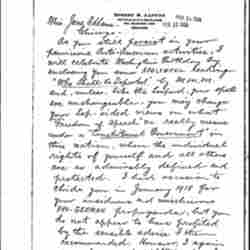 ROBERT M. LAPINE
Miss Jane Addams
Chicago.
As you still persist in your
pernicious Anti-American activities, I
will celebrate Washington's Birthday by
enclosing you some
"Who Shall be Deported"
and, unless, like the leopard, your spots
are unchangeable, you may change
your lop-sided views on what
"Freedom of Speech" really means
under a Constitutional Government in
this nation, where the individual
rights of yourself and all others
are so admirably defined and
protested. I had occasion to
chide you in January 1918 for
your assiduous and mischievous
PRO-GERMAN propaganda, but you
do not appear to have profited
by the sensible advice I then
recommended. However, I again